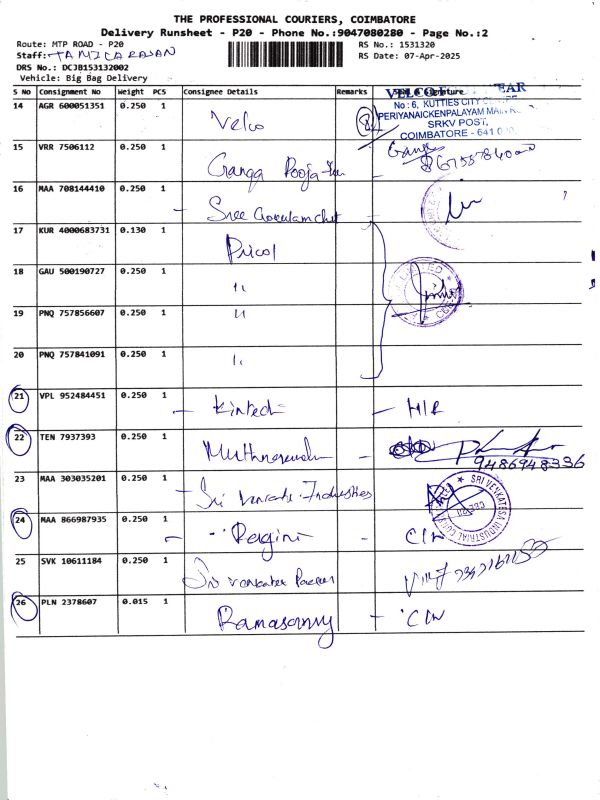 THE PROFESSIONAL COURIERS, COIMBATORE
Delivery Runsheet - P20 - Phone No.:9047080280 - Page No.:2
Route: MTP ROAD - P20
RS No.: 1531320
Staff:
RS Date: 07-Apr-2025
DRS No.: DCJB153132002
Vehicle: Big Bag Delivery
S No Consignment No Weight PCS Consignee Details Remarks
14 AGR 600051351 0.250 1 Velco
No: 6, KUTTIES CITY
PERIYANAICKENPALAYAM MAIN
SRKV POST,
COIMBATORE - 641
15 VRR 7506112 0.250 1 Ganga Pooja Ganga
16 MAA 708144410 0.250 1 - Sree Gokulam chit
17 KUR 4000683731 0.130 1 Pricol
18 GAU 500190727 0.250 1 "
19 PNQ 757856607 0.250 1 "
20 PNQ 757841091 0.250 1 "
21 VPL 952484451 0.250 1 - Kintech - H/R
22 TEN 7937393 0.250 1 - 9486948336
23 MAA 303035201 0.250 1 - Sri Venkate Industries
SRI VENKATESA INDUSTRIAL
24 MAA 866987935 0.250 1 - Ragini - C/N
25 SVK 10611184 0.250 1 Sri Venkates
26 PLN 2378607 0.015 1 Ramasamy - C/N